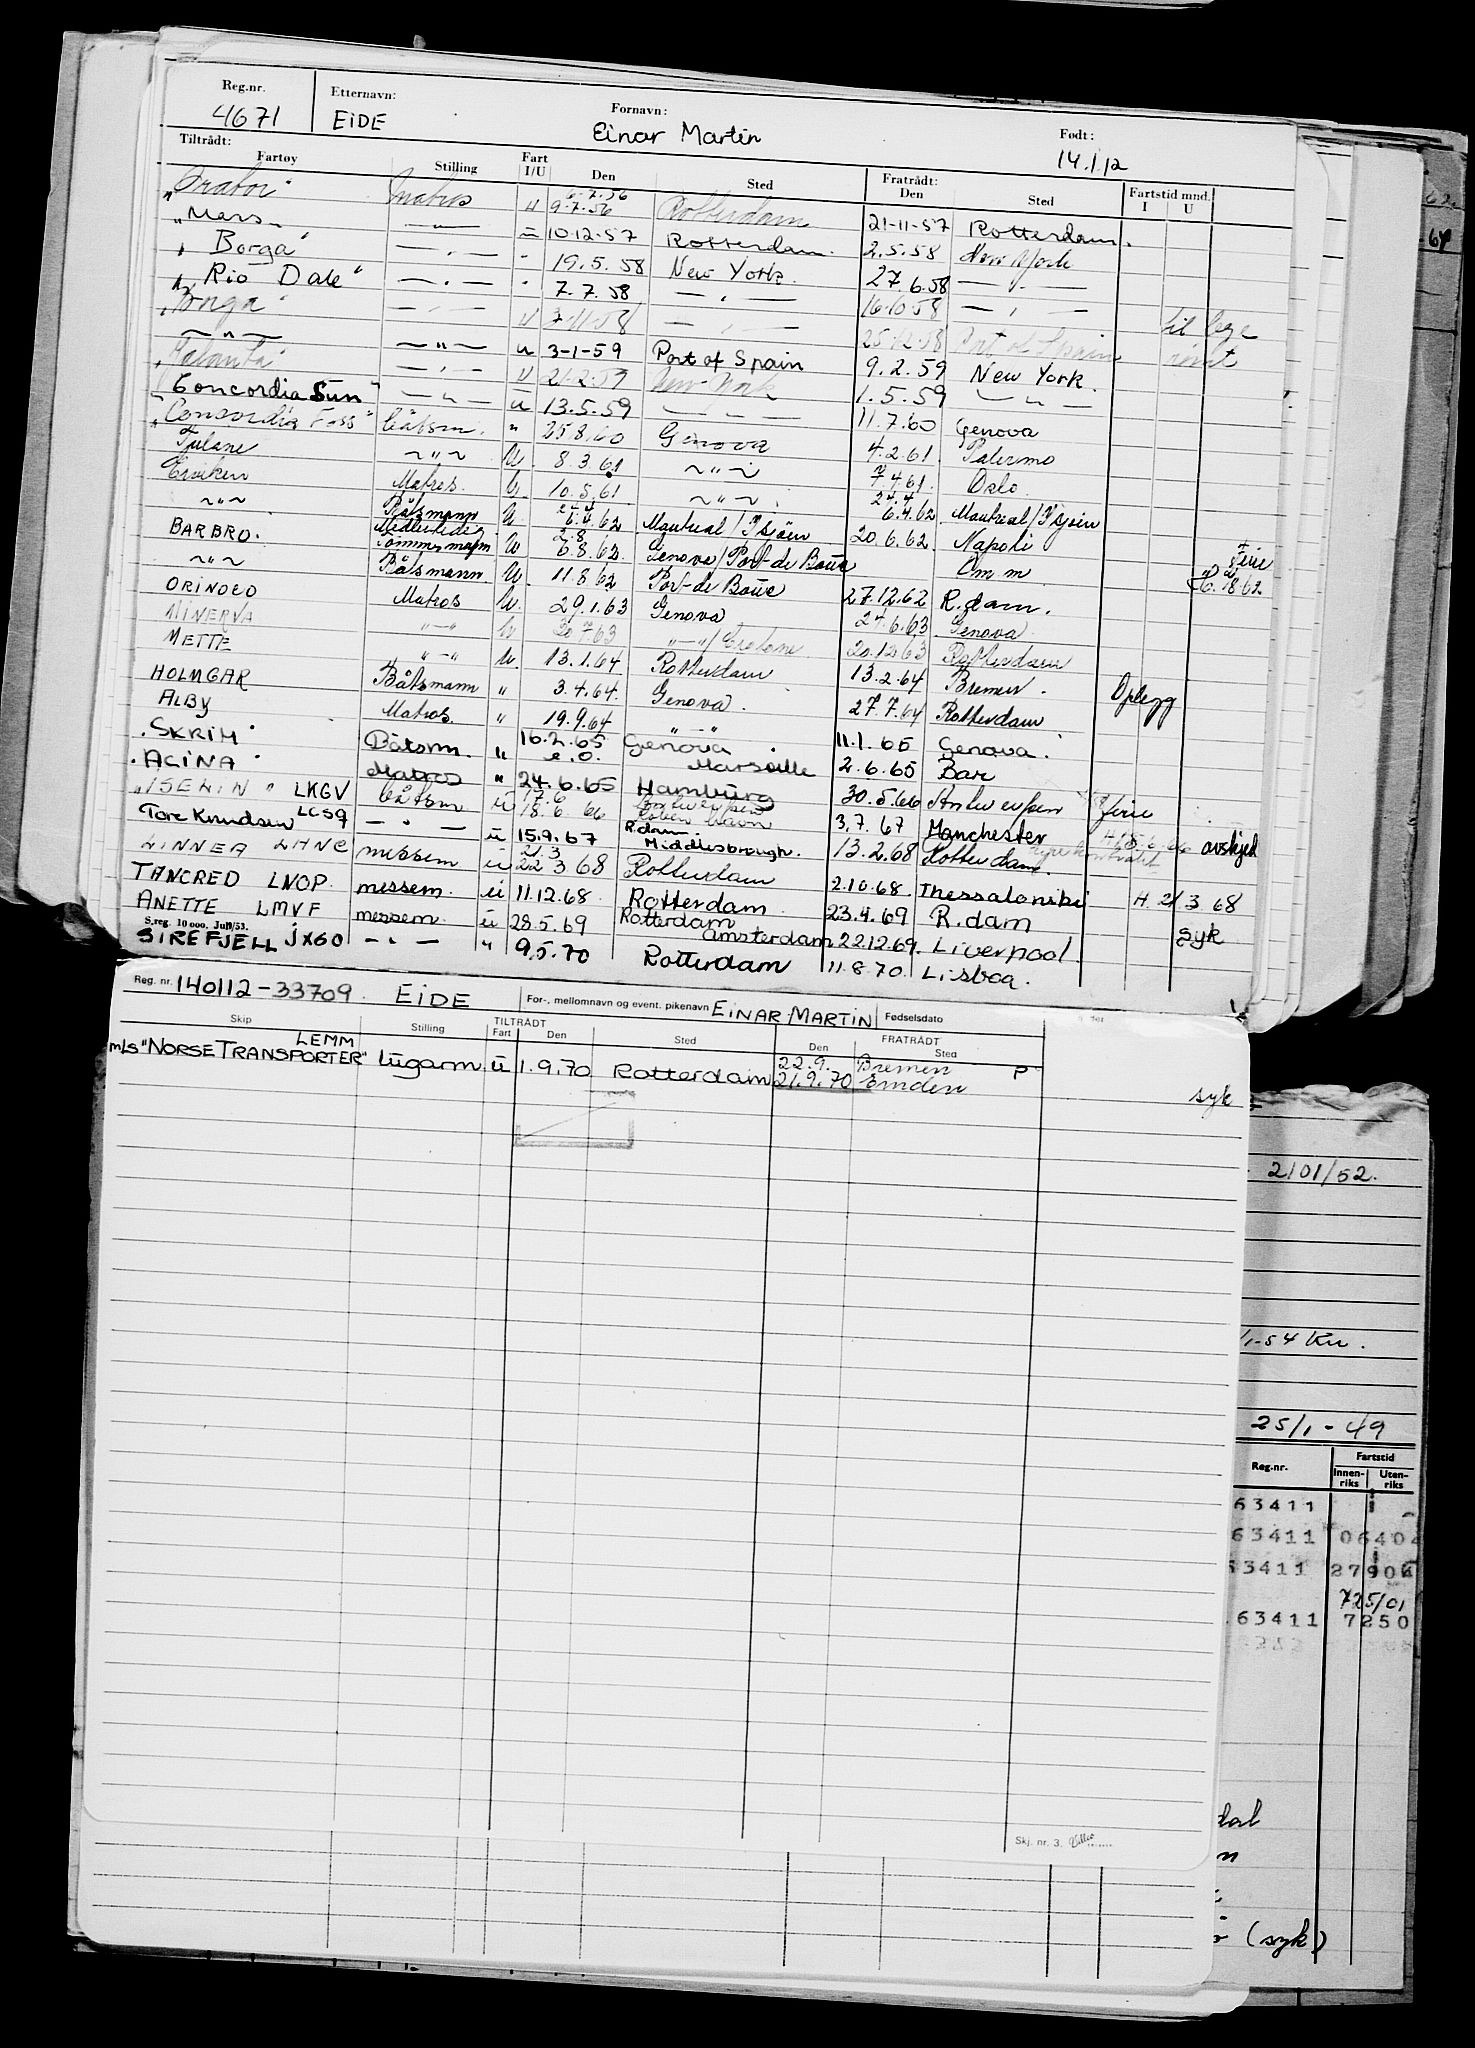 Reg.nr. Etternavn: Fornavn: Født:
4671 EIDE Einar Martin 14.1.12
Tiltrådt: Fratrådt:
Fartøy Stilling Fart I/U Den Sted Den Sted Fartstid mnd. I U
Matros u 6.7.56 9.7.56 Rotterdam 21-11-57 Rotterdam.
"Mars" — " — ü 10.12.57 Rotterdam 2.5.58 New York
"Borga" — " — " 19.5.58 New York 27.6.58 — " —
"Rio Dale" — " — " 7.7.58 — " — 16.10.58 — " —
"Borga" — " — u 7-11-58 — " — 25.12.58 Port of Spain til lege
— " — — " — u 3-1-59 Port of Spain 9.2.59 New York.
— " — u 21.2.59 New York 1.5.59 — " —
"Concordia Sun" — " — ü 13.5.59 — " — 11.7.60 Genova
"Concordia Foss" båtsm. " 25.8.60 Genova 4.2.61 Palermo
Tulane ~ " ~ U. 8.3.61 ~ " ~ 7.4.61 Oslo
Matros U. 10.5.61 ~ " ~
~ " ~ Båtsmann U. 6.4.62 Montreal / 6.4.62 Montreal /
BARBRO. Midlertidig Tømmermann U 2.8 6.8.62 Genova / Port-de Bouc 20.6.62 Napoli
~ " ~ Båtsmann U. 11.8.62 Port-de Bouc Om m Ferie
ORINOCO Matros U. 29.1.63 Genova 27.12.62 R.dam.
MINERVA " — " U 20.7.63 24.6.63 Genova
METTE " — " U. 13.1.64 Rotterdam 20.12.63 Rotterdam
HOLMGAR Båtsmann " 3.4.64. Genova. 13.2.64 Bremen. Oplegg
ALBY Matros. " 19.9.64 " — " 27.7.64 Rotterdam
"SKRIM" Båtsm. " 16.2.65 Genova. 11.1.65 Genova.
"AGINA" Matros " 24.6.65 Marseille Hamburg 2.6.65 Bar
LKGV båtsm ü 17.6 18.6 66 Antwerpen 30.5.66 Antwerpen ferie
Tore Knudsen LCSQ — " — ü 15.9.67 R.dam. Middlesbrough. 3.7.67 Manchester avskjed
LINNEA LHNC messem ü 21.3 22.3 68 Rotterdam 13.2.68 Rotterdam.
TANCRED LNOP. messem. ü 11.12.68. Rotterdam 2.10.68 Thessaloniki H 21/3 68
ANETTE LMVF messem. ü 28.5.69 Rotterdam 23.4.69 R.dam
S.reg. 10 000. Juli/53.
SIREFJELL JXGO — " — " 9.5.70 Amsterdam Rotterdam 22.12.69. Liverpool. syk
11.8.70. Lisboa.
Reg. nr. 140112-33709. EIDE For-, mellomnavn og event. pikenavn EINAR MARTIN Fødselsdato
TILTRÅDT FRATRÅDT
Skip Stilling Fart Den Sted Den Sted
LEMM
m/s "NORSE TRANSPORTER" lugarm. ü 1.9.70 Rotterdam 22.9. Bremen P
21.9.70 Emden
syk
2101/52.
1-54 Kn.
25/1-49
Reg.nr. Fartstid
Innen-riks Uten-riks
63411
63411 0640
63411 2790
725/01
63411 7250
Skj. nr. 3.
(syk)